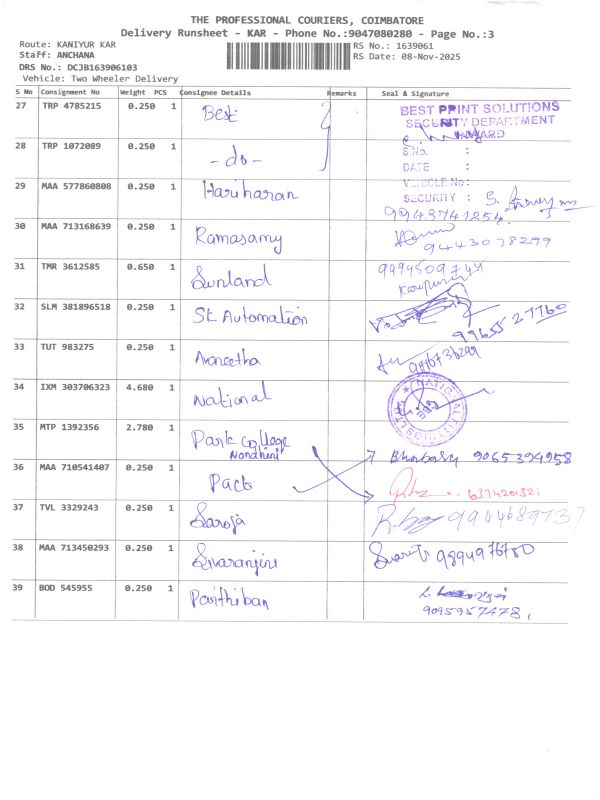 THE PROFESSIONAL COURIERS, COIMBATORE
Delivery Runsheet - KAR - Phone No.:9047080280 - Page No.:3
Route: KANIYUR KAR RS No.: 1639061
Staff: ANCHANA RS Date: 08-Nov-2025
DRS No.: DCJB163906103
Vehicle: Two Wheeler Delivery
S No Consignment No Weight PCS Consignee Details Remarks Seal & Signature
27 TRP 4785215 0.250 1 Best BEST PRINT SOLUTIONS
SECURITY DEPARTMENT
INWARD
28 TRP 1072089 0.250 1 -do- S.No. :
DATE :
29 MAA 577860808 0.250 1 Hariharan VEHICLE No :
SECURITY : S.
9943741254
30 MAA 713168639 0.250 1 Ramasamy
9443078299
31 TMR 3612585 0.650 1 Sunland
32 SLM 381896518 0.250 1 St Automation 99655 27760
33 TUT 983275 0.250 1 Avaneetha
34 IXM 303706323 4.680 1 National NATIONAL
35 MTP 1392356 2.780 1 Park College
Nandhini 9065394958
36 MAA 710541407 0.250 1 Pact
37 TVL 3329243 0.250 1 Saroja
38 MAA 713450293 0.250 1 Sivaranjini 9894976780
39 BOD 545955 0.250 1 Parthiban
9095957478